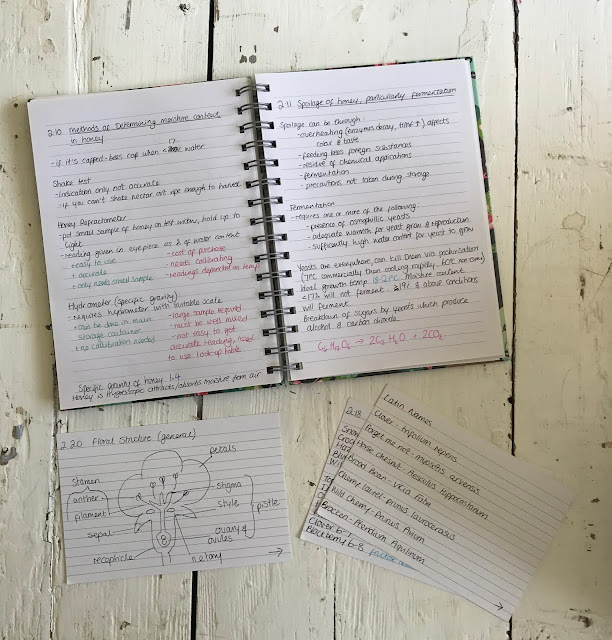 2.10 Methods of Determining Moisture content
in honey
- if it's capped - bees cap when < 17 water
Shake test
- indication only not accurate
- if you can't shake nectar out ripe enough to harvest
Honey Refractometer
- put small sample of honey on test window, hold up to
light
- reading given in eyepiece as % of water content
+ easy to use
+ accurate
+ only needs small sample
- cost of purchase
- needs calibrating
- readings dependent on temp
Hydrometer (Specific gravity)
- requires hydrometer with suitable scale
+ can be done in main
storage container
+ no calibration needed
- large sample required
- must be well mixed
- not easy to get
accurate reading, need
to use look-up table
Specific gravity of honey 1.4
Honey is Hygroscopic attracts/absorbs moisture from air
2.11 Spoilage of honey, particularly fermentation
Spoilage can be through:
- overheating (enzymes decay, HMF ↑) affects
color & taste
- feeding bees foreign substances
- residue of chemical applications
- fermentation
- precautions not taken during storage
Fermentation
- requires one or more of the following:
- presence of osmophilic yeasts
- adequate warmth for yeast grow & reproduction
- sufficiently high water content for yeast to grow
Yeasts are everywhere, can kill them via pasturisation
(71°C commercially then cooling rapidly,
Ideal growth temp 18-21°C. Moisture content
<17% will not ferment. ≥19% & above conditions
will ferment.
Breakdown of sugars by yeasts which produce
alcohol & carbon dioxide.
C6 H12 O6 → 2C2 H6 O + 2CO2
2.20 Floral Structure (general)
petals
Stamen
anther
filament
sepal
receptacle
stigma
style
ovary &
ovules
pistle
nectary
Latin Names
Clover - trifolium repens
Forget me not - myosotis arvensis
Horse Chesnut - Aesculus Hippocastanum
Broad Bean - Vicia Faba
Cherry laurel - Prunus laurocerasus
Wild Cherry - Prunus Avium
Bracken - Pteridium Aquilinum
2.18
Clover 6-
Blackberry 6-8